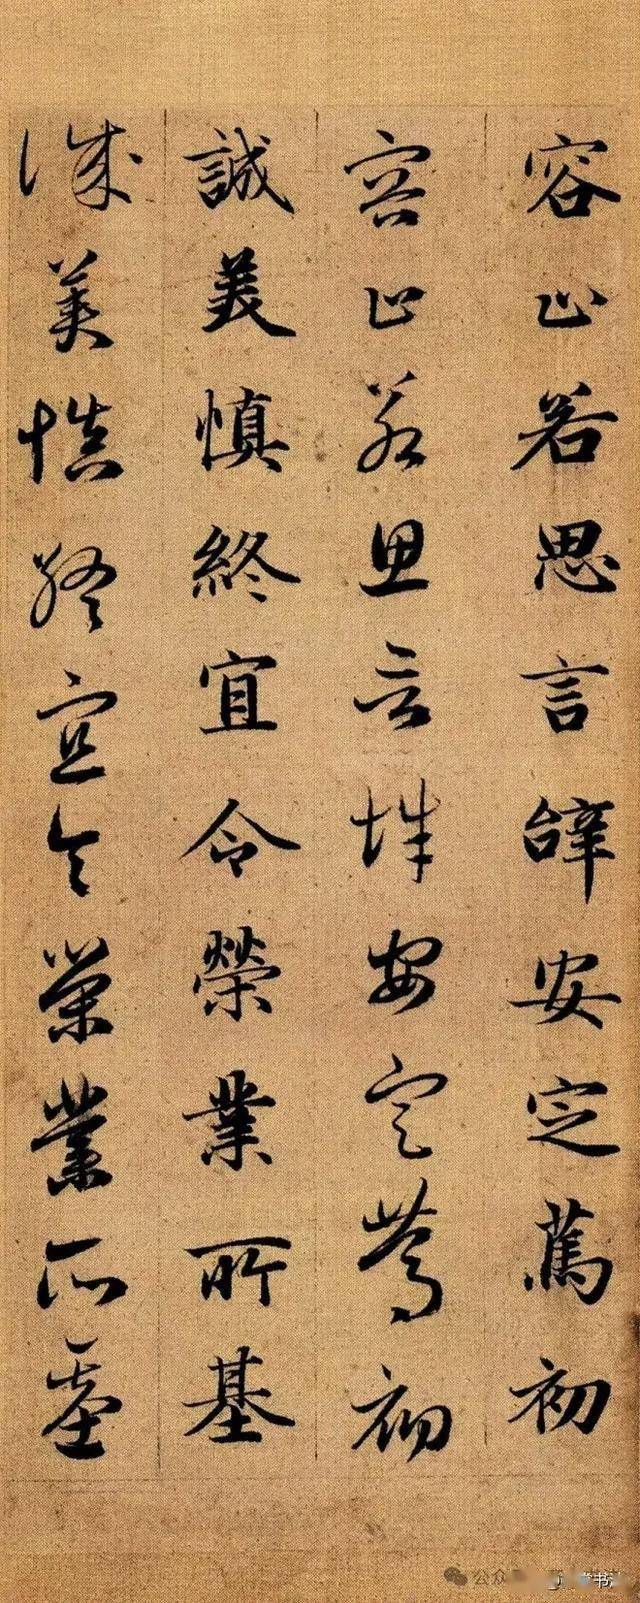 容止若思言辞安定篤初
容止若思言辞安定篤初
誠美慎終宜令榮業所基
誠美慎終宜令榮業所基
公众
书